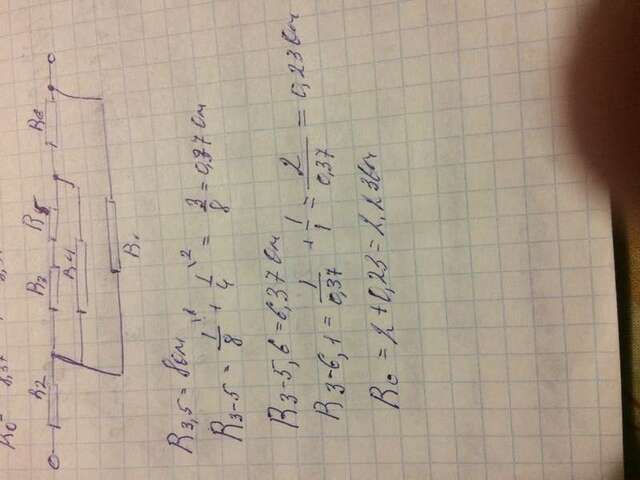 R2 R3 R5 R6
R4
R1
R3,5 = 8 Ом
R3-5 = 1/8 + 1/4 \2 = 3/8 = 0,37 Ом
R3-5,6 = 6,37 Ом
R3-6,1 = 1/0,37 + 1/1 = 2/0,37 = 0,23 Ом
R0 = 2 + 0,23 = 2,23 Ом